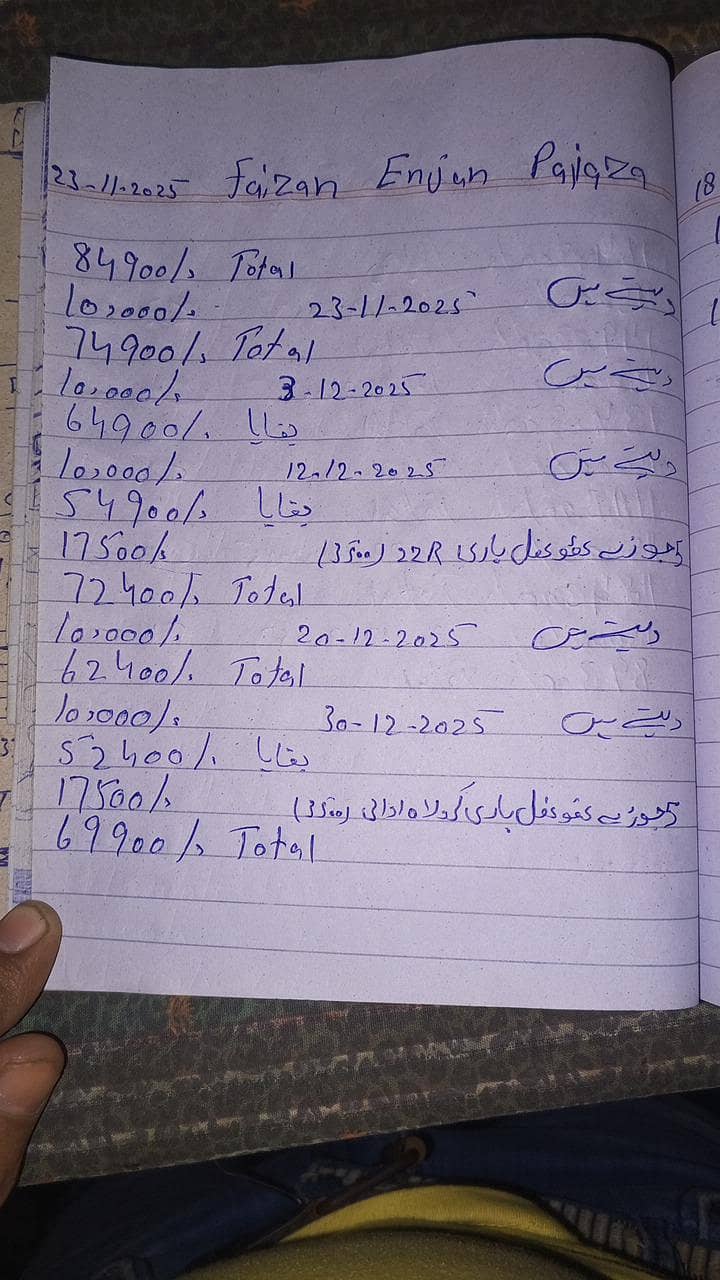 23-11-2025 Faizan Enjun Pajaza
84900/. Total
10,000/. 23-11-2025 دیئے ہیں
74900/. Total
10,000/. 3-12-2025 دیئے ہیں
64900/. بقایا
10,000/. 12-12-2025 دیئے ہیں
54900/. بقایا
17500/. 5 جوڑے فل باری 22R (3500)
72400/. Total
10,000/. 20-12-2025 دیئے ہیں
62400/. Total
10,000/. 30-12-2025 دیئے ہیں
52400/. بقایا
17500/. 5 جوڑے فل باری (3500)
69900/. Total
18